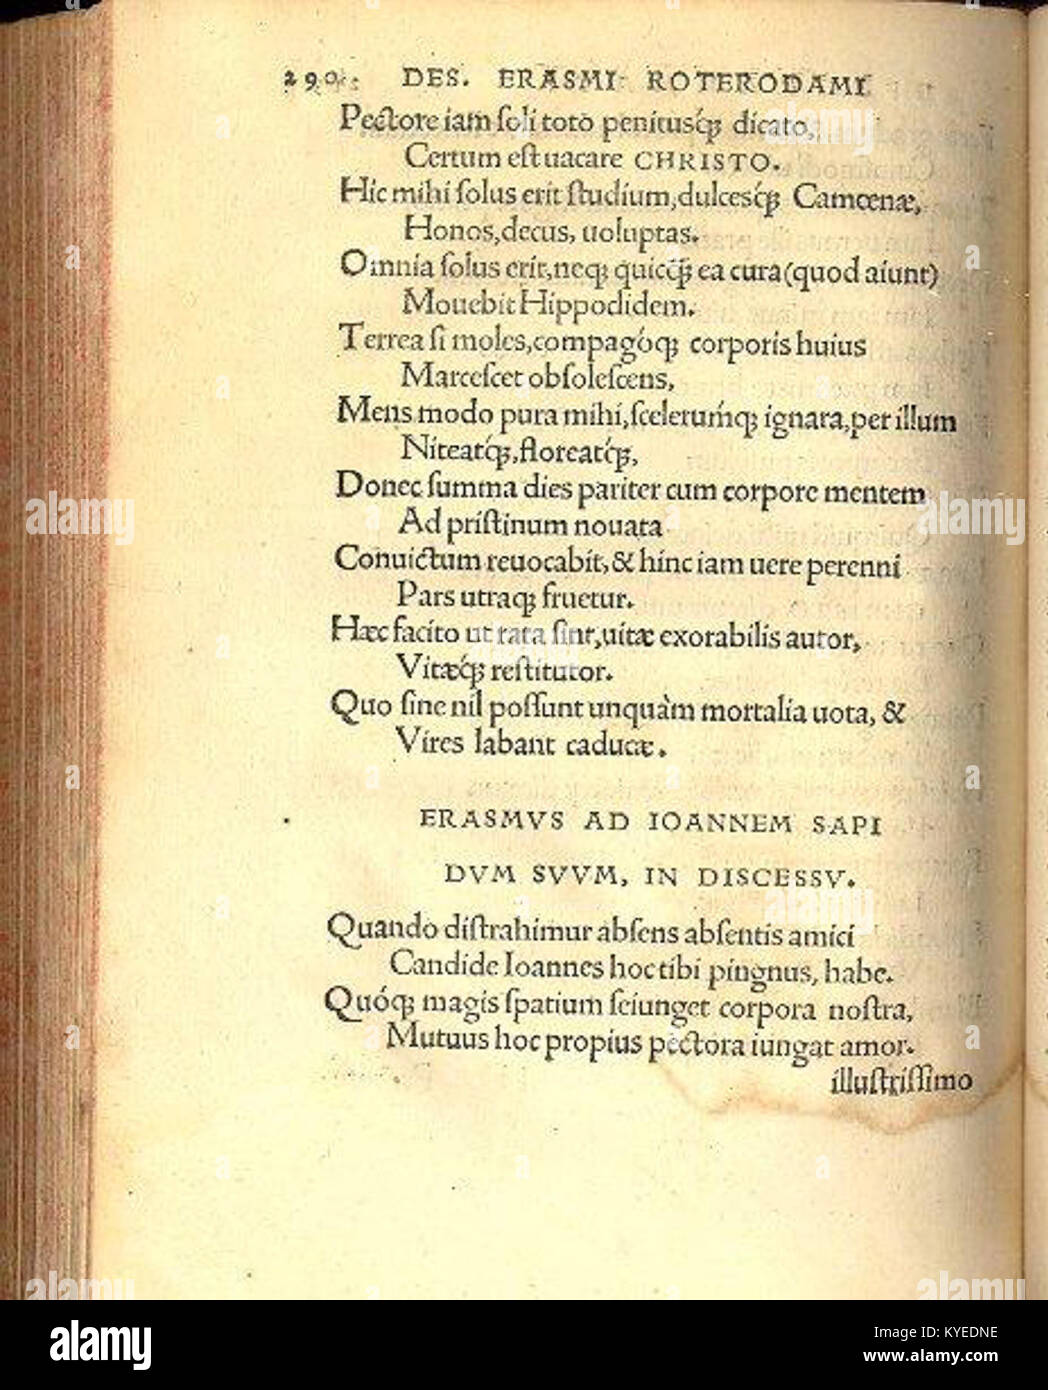 290 DES. ERASMI ROTERODAMI
Pectore iam ſoli toto penitusq́ꝫ dicato,
Certum eſt uacare CHRISTO.
Hic mihi ſolus erit ſtudium,dulcesq́ꝫ Camœnæ,
Honos,decus, uoluptas.
Omnia ſolus erit,neqꝫ quicq̃ꝫ ea cura(quod aiunt)
Mouebit Hippoclidem.
Terrea ſi moles,compagóqꝫ corporis huius
Marceſcet obſoleſcens,
Mens modo pura mihi,ſcelerumq́ꝫ ignara,per illum
Niteatq́ꝫ,floreatq́ꝫ,
Donec ſumma dies pariter cum corpore mentem
Ad priſtinum nouata
Conuictum reuocabit,& hinc iam uere perenni
Pars utraqꝫ fruetur.
Hæc facito ut rata ſint,uitæ exorabilis autor,
Vitæq́ꝫ reſtitutor.
Quo ſine nil poſſunt unquàm mortalia uota, &
Vires labant caducæ.
ERASMVS AD IOANNEM SAPI
DVM SVVM, IN DISCESSV.
Quando diſtrahimur abſens abſentis amici
Candide Ioannes hoc tibi pingnus, habe.
Quóqꝫ magis ſpatium ſeiunget corpora noſtra,
Mutuus hoc propius pectora iungat amor.
illuſtriſſimo
alamy
Image ID: KYEDNE
www.alamy.com